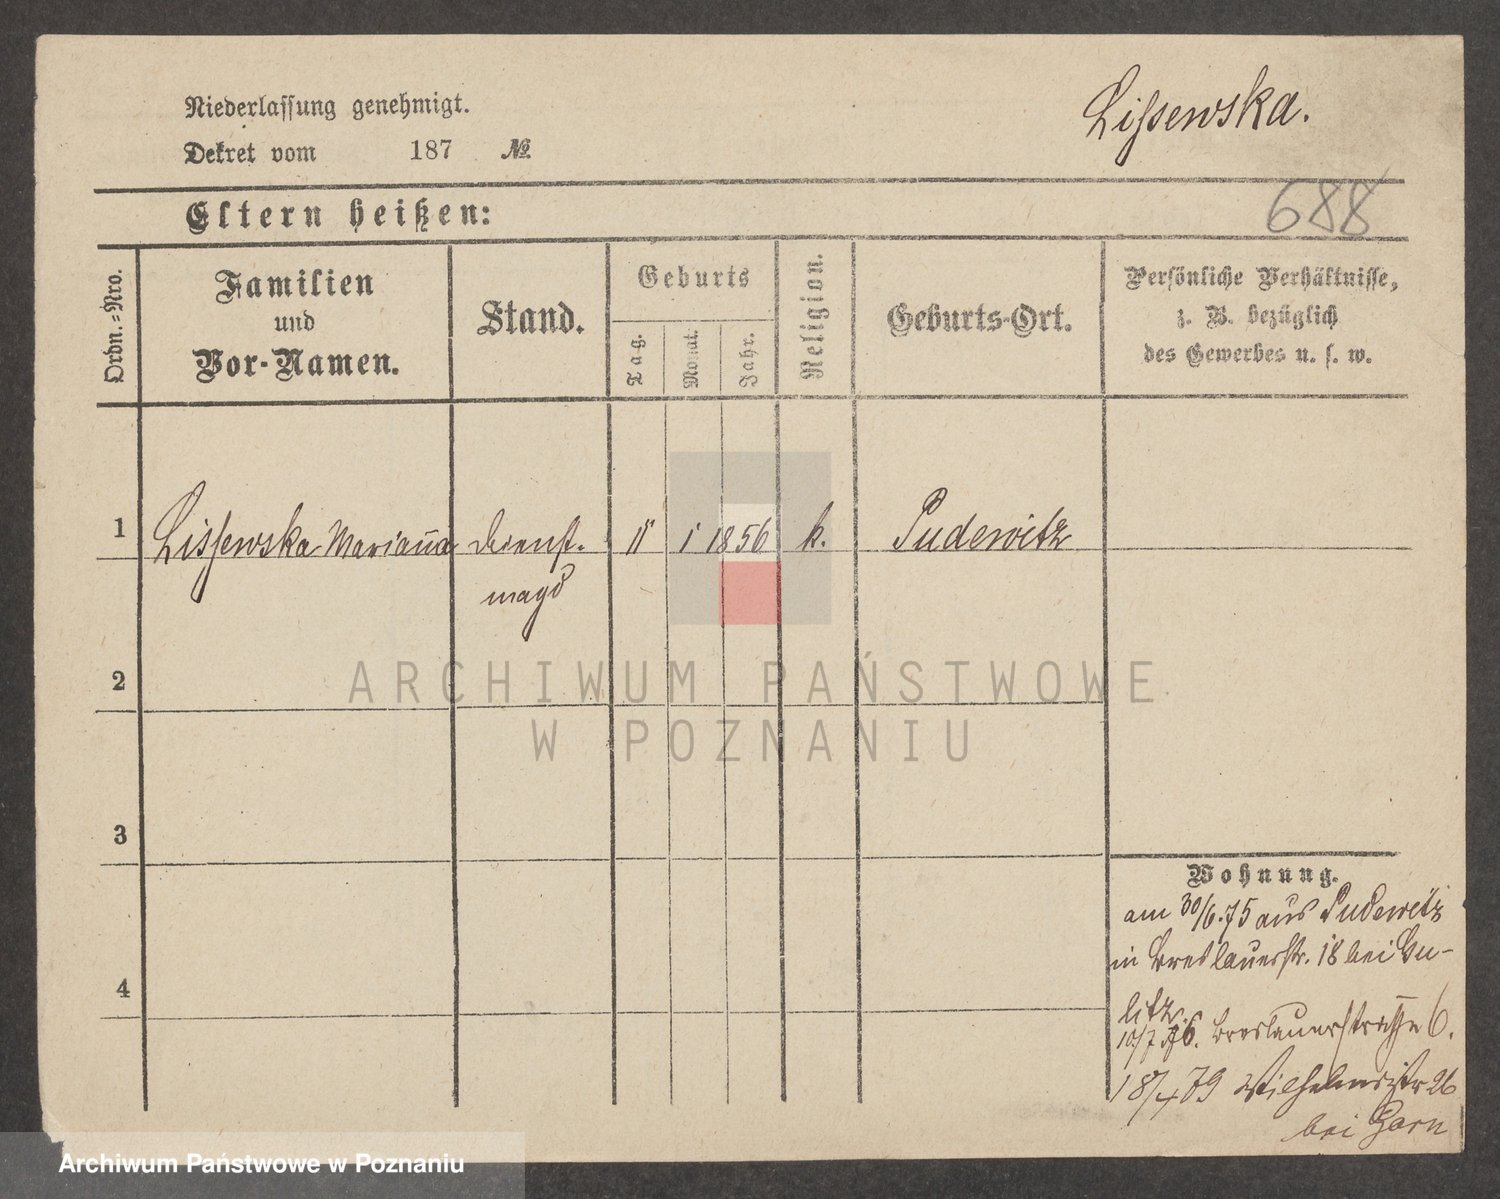 Niederlassung genehmigt.
Dekret vom 187 №
Lissewska.
688
Eltern heißen:
Ordn.-Nro.
Familien
und
Vor-Namen.
Stand.
Geburts
Tag.
Monat.
Jahr.
Religion.
Geburts-Ort.
Persönliche Verhältnisse,
z. B. bezüglich
des Gewerbes u. s. w.
1 Lissewska Marianna Dienst- 11 1 1856 k. Pudewitz
magd
2
3
4
Wohnung.
am 30/6.75 aus Pudewitz
in Breslauerstr. 18 bei Gu-
litz.
10/7 76. Breslauerstrasse 6.
18/4 79 Wilhelmsstr 26
bei
ARCHIWUM PAŃSTWOWE
W POZNANIU
Archiwum Państwowe w Poznaniu